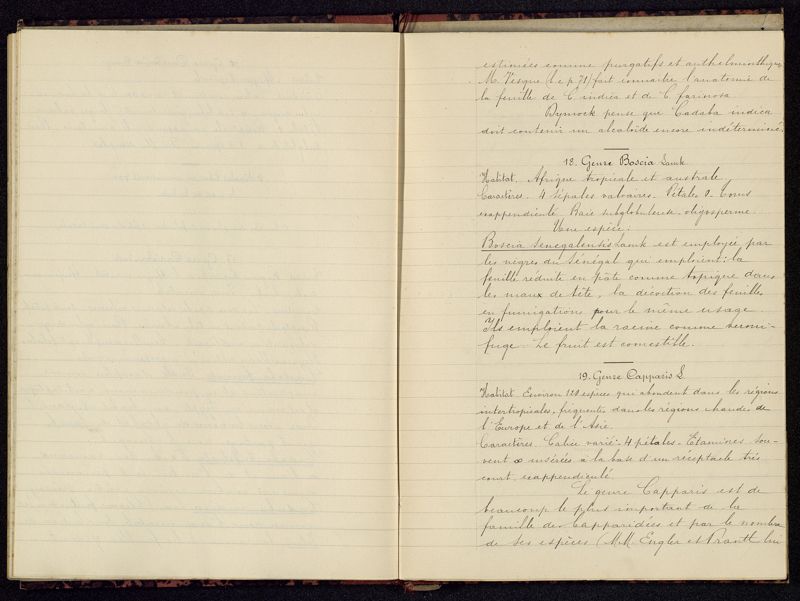 estimées comme purgatifs et anthelminthiques
M. Vesque (l. c. p. 71) fait connaître l'anatomie de
la feuille de C. indica et de C. farinosa
Dymock pense que Cadaba indica
doit contenir un alcaloïde encore indéterminé.
18. Genre Boscia Lamk
Habitat. Afrique tropicale et australe
Caractères. 4 Sépales valvaires. Pétales 0. Torus
inappendiculé. Baie subglobuleuse. oligosperme.
Une espèce.
Boscia senegalensis Lamk est employée par
les nègres du Sénégal qui emploient: la
feuille réduite en pâte comme topique dans
les maux de tête, la décoction des feuilles
en fumigations pour le même usage.
Ils emploient la racine comme vermi-
fuge. Le fruit est comestible.
19. Genre Capparis L.
Habitat. Environ 120 espèces qui abondent dans les régions
intertropicales, fréquentes dans les régions chaudes de
l'Europe et de l'Asie.
Caractères. Calice varié. 4 pétales. Etamines sou-
vent ∞ insérées à la base d'un réceptacle très
court, inappendiculé.
Le genre Capparis est de
beaucoup le plus important de la
famille des Capparidées et par le nombre
de ses espèces (M.M. Engler et Prantl lui